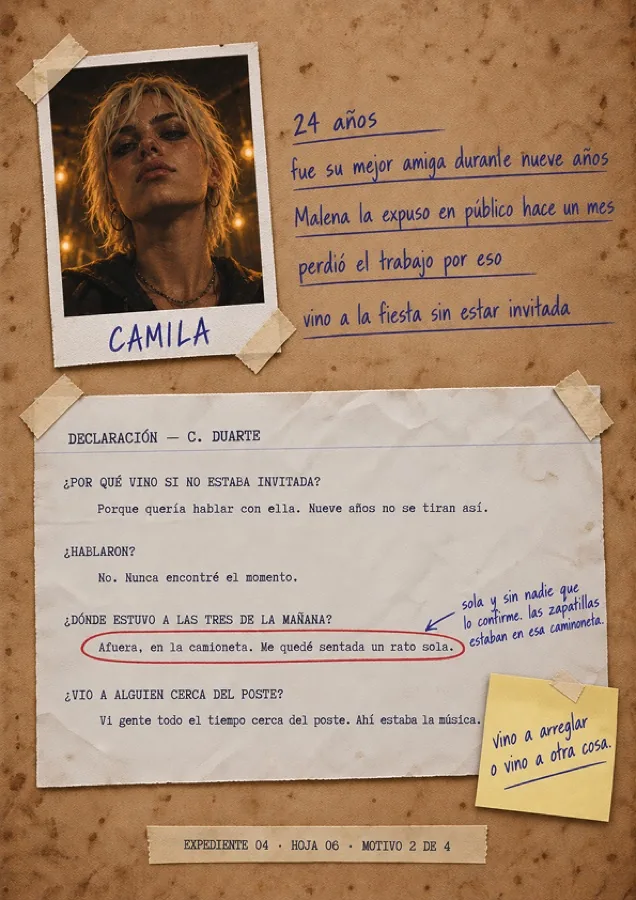 24 años
fue su mejor amiga durante nueve años
Malena la expuso en público hace un mes
perdió el trabajo por eso
vino a la fiesta sin estar invitada
CAMILA
DECLARACIÓN — C. DUARTE
¿POR QUÉ VINO SI NO ESTABA INVITADA?
Porque quería hablar con ella. Nueve años no se tiran así.
¿HABLARON?
No. Nunca encontré el momento.
¿DÓNDE ESTUVO A LAS TRES DE LA MAÑANA?
Afuera, en la camioneta. Me quedé sentada un rato sola.
sola y sin nadie que
lo confirme. las zapatillas
estaban en esa caminoneta.
¿VIO A ALGUIEN CERCA DEL POSTE?
Vi gente todo el tiempo cerca del poste. Ahí estaba la música.
vino a arreglar
o vino a otra cosa.
EXPEDIENTE 04 · HOJA 06 · MOTIVO 2 DE 4